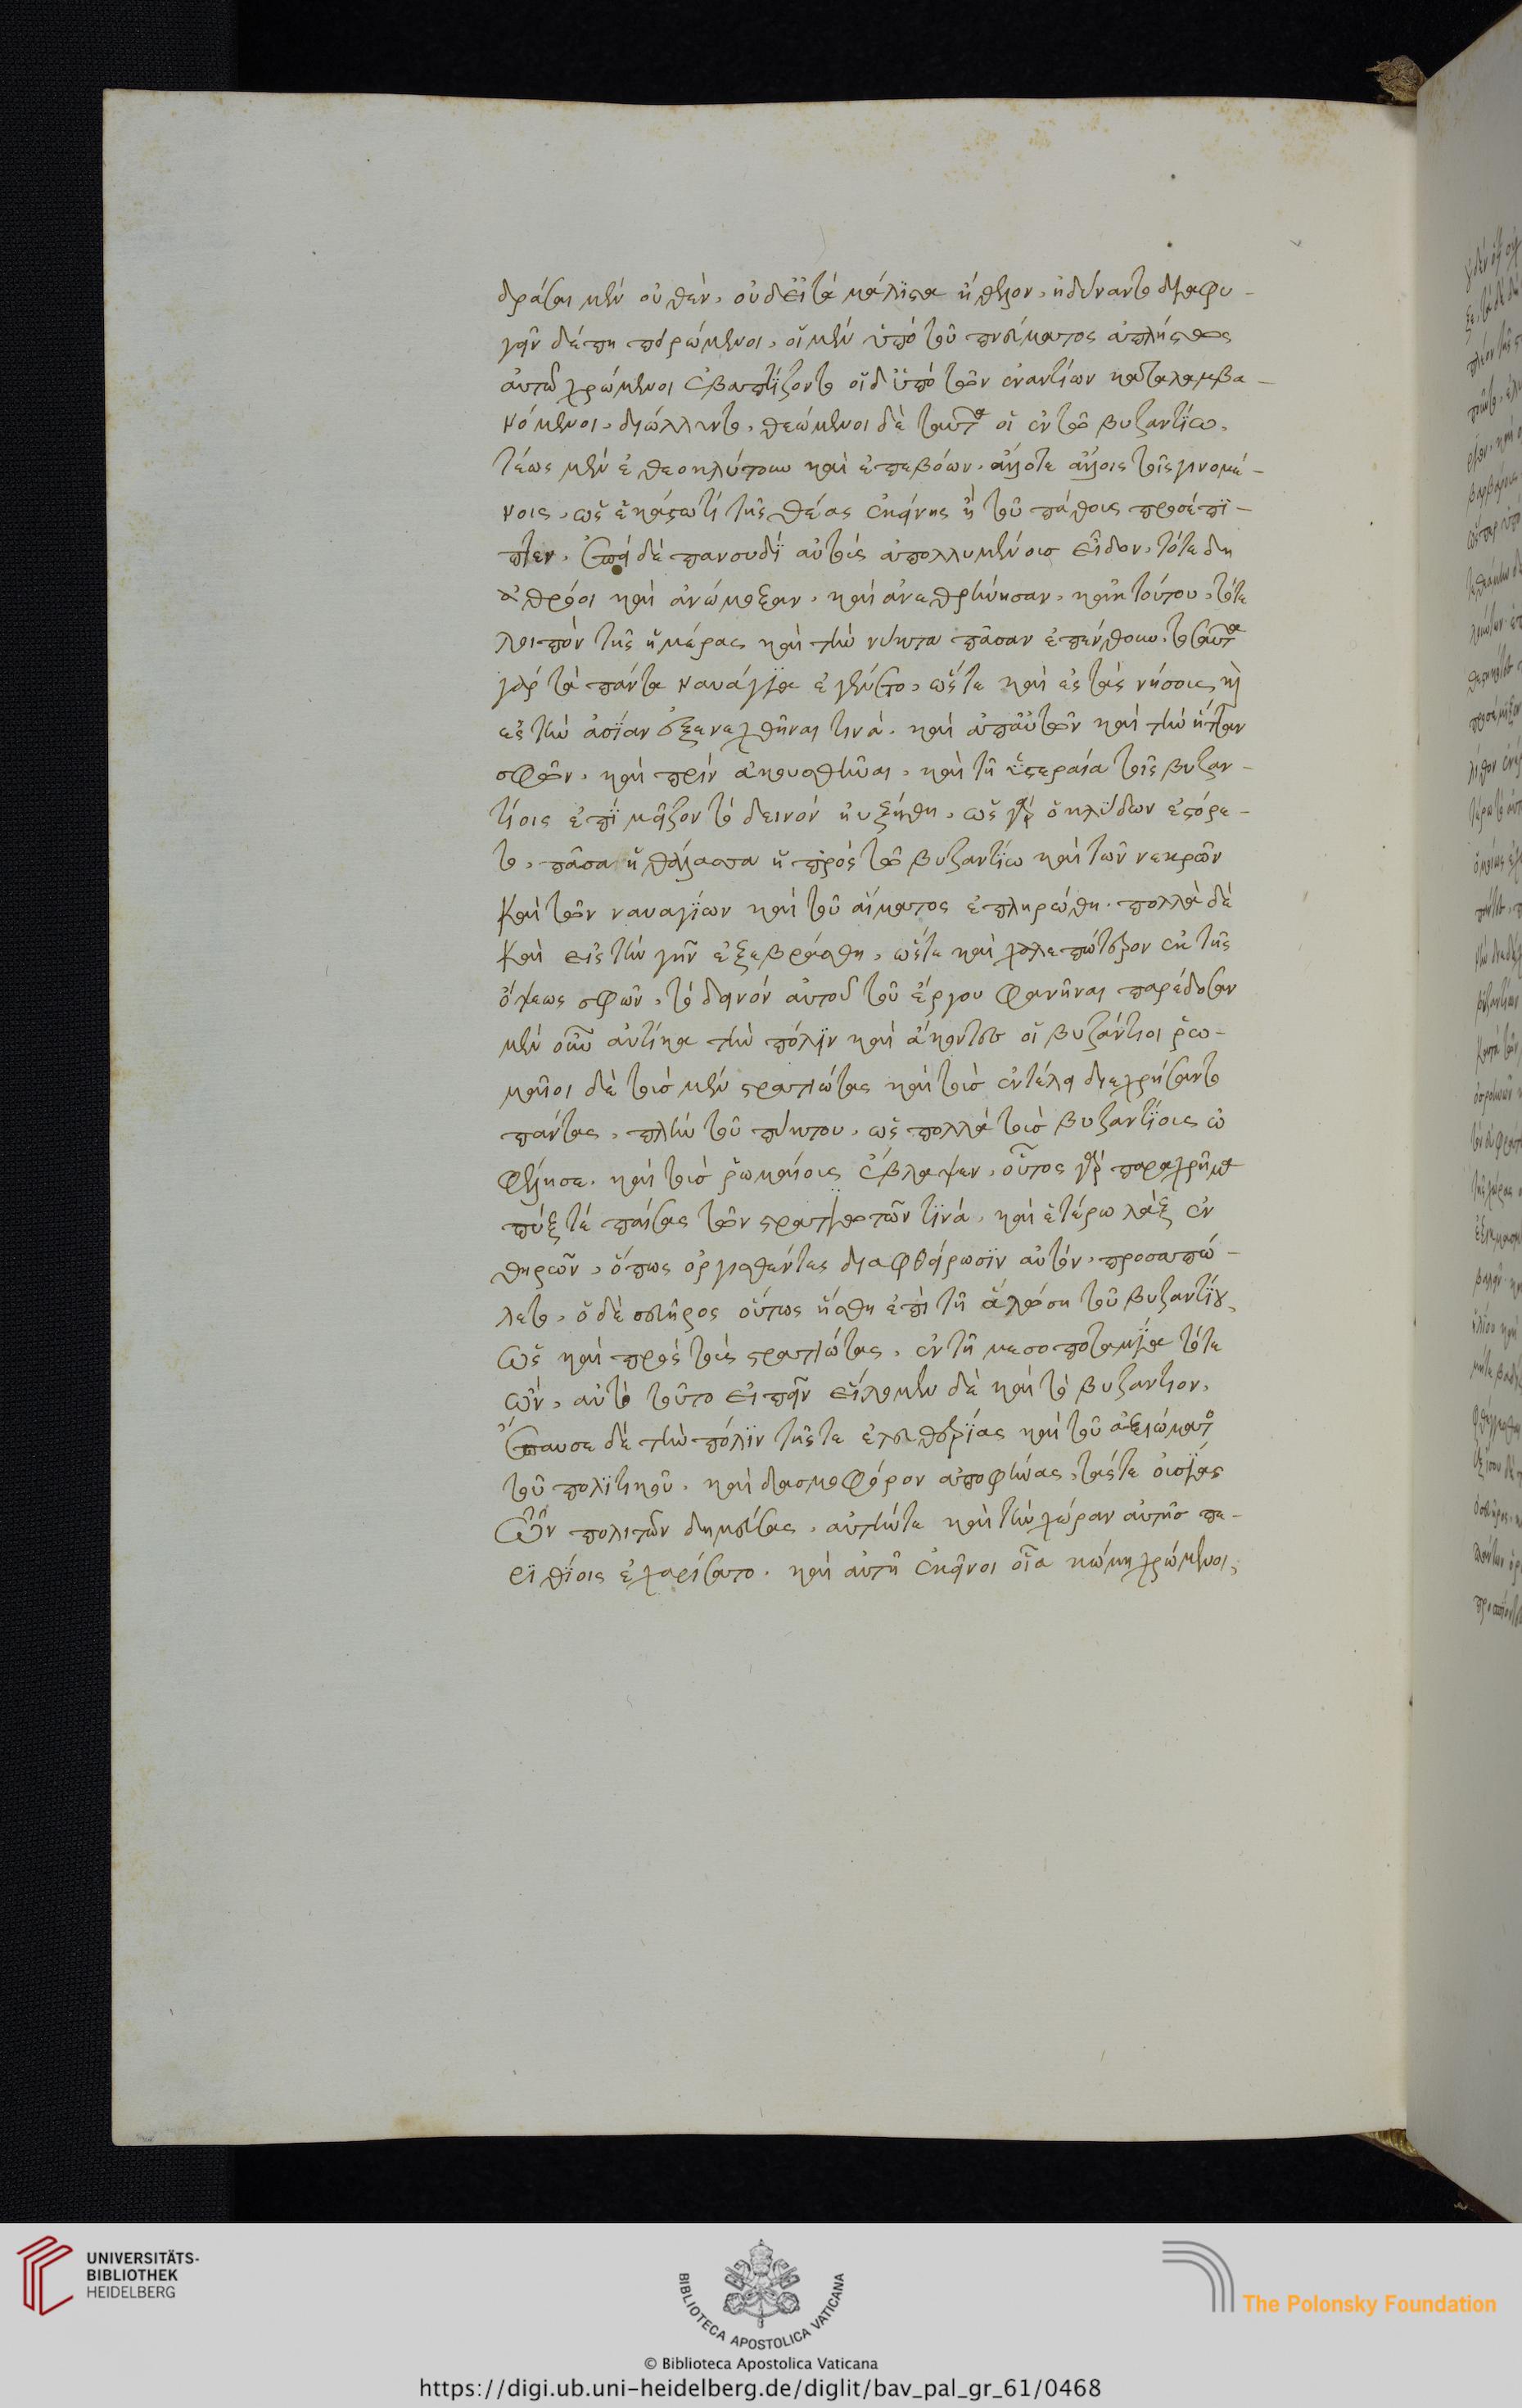 δρᾶσαι μὲν οὐθὲν, οὐδ' εἰ τὰ μάλιστα ἤθελον, ἠδύναντο διαφυ-
γεῖν δέ πη πειρώμενοι, οἱ μὲν ὑπὸ τοῦ πνεύματος ἀπλήστως
αὐτῷ χρώμενοι ἐβαπτίζοντο οἱ δ' ὑπὸ τῶν ἐναντίων καταλαμβα-
νόμενοι, διώλλυντο, θεώμενοι δὲ ταῦτα οἱ ἐν τῷ βυζαντίω,
τέως μὲν ἐθεοκλύτουν καὶ ἐπεβόων, ἄλλοτε ἄλλοις τοῖς γινομέ-
νοις, ὡς ἑκάστω τι τῆς θέας ἐκείνης ἢ τοῦ πάθους προσέπι-
πτεν. ἐπεὶ δὲ πανσυδὶ αὐτοὺς ἀπολλυμένους εἶδον, τότε δὴ
ἀθρόοι καὶ ἀνώμωξαν, καὶ ἀνεθρήνησαν, κἀκ τούτου, τότε
λοιπὸν τῆς ἡμέρας καὶ τὴν νύκτα πᾶσαν ἐπένθουν. τοσαῦτα
γὰρ τὰ πάντα ναυάγια ἐγένετο, ὥστε καὶ ἐς τὰς νήσους, καὶ
ἐς τὴν ἀσίαν ἐξενεχθῆναι τινά. καὶ ἀπ' αὐτῶν καὶ τὴν ἧτταν
σφῶν, καὶ πρὶν ἀκουσθῆναι, καὶ τῆ ὑστεραία τοῖς βυζαν-
τίοις ἐπὶ μεῖζον τὸ δεινὸν ηὐξήθη, ὡς γὰρ ὁ κλύδων ἐστόρε-
το, πᾶσα ἡ θάλασσα ἡ πρὸς τῷ βυζαντίω καὶ τῶν νεκρῶν
καὶ τῶν ναυαγίων καὶ τοῦ αἵματος ἐπληρώθη. πολλὰ δὲ
καὶ εἰς τὴν γῆν ἐξεβράσθη, ὥστε καὶ χαλεπώτερον ἐκ τῆς
ὄψεως σφῶν, τὸ δεινὸν αὐτοῦ τοῦ ἔργου φανῆναι παρέδοσαν
μὲν οὖν αὐτίκα τὴν πόλιν καὶ ἄκοντες οἱ βυζάντιοι ῥω-
μαῖοι δὲ τοὺς μὲν στρατιώτας καὶ τοὺς ἐν τέλει διεχρήσαντο
πάντας, πλὴν τοῦ πύκτου, ὡς πολλὰ τοὺς βυζαντίους ὠ
φέλησε. καὶ τοὺς ῥωμαίους ἔβλαψεν, οὗτος γὰρ παραχρῆμα
πύξ τέ παίσας τῶν στρατιωτῶν τινά, καὶ ἑτέρω λὰξ ἐν
θηρῶν, ὅπως ὀργισθέντες διαφθείρωσιν αὐτόν, προσαπώ-
λετο, ὁ δὲ σευῆρος οὕτως ἥσθη ἐπὶ τῆ ἁλώσει τοῦ βυζαντίου,
ὡς καὶ πρὸς τοὺς στρατιώτας, ἐν τῆ μεσοποταμία τότε
ὢν, αὐτὸ τοῦτο εἰπεῖν εἵλομεν δὲ καὶ τὸ βυζάντιον,
ἔπαυσε δὲ τὴν πόλιν τῆς τε ἐλευθερίας καὶ τοῦ ἀξιώματος
τοῦ πολιτικοῦ, καὶ δασμοφόρον ἀποφήνας, τάς τε οὐσίας
τῶν πολιτῶν δημεύσας, αὐτήν τε καὶ τὴν χώραν αὐτῆς πε-
ρινθίοις ἐχαρίσατο. καὶ αὐτῆ ἐκεῖνοι οἷα κώμη χρώμενοι,
UNIVERSITÄTS-
BIBLIOTHEK
HEIDELBERG
BIBLIOTECA APOSTOLICA VATICANA
© Biblioteca Apostolica Vaticana
The Polonsky Foundation
https://digi.ub.uni-heidelberg.de/diglit/bav_pal_gr_61/0468